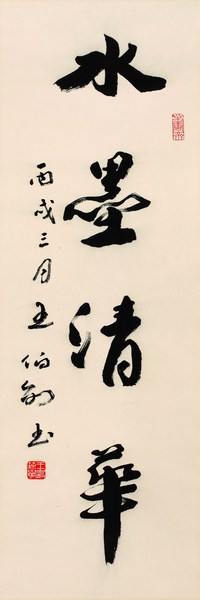 水墨清華
丙戌三月王伯敏书